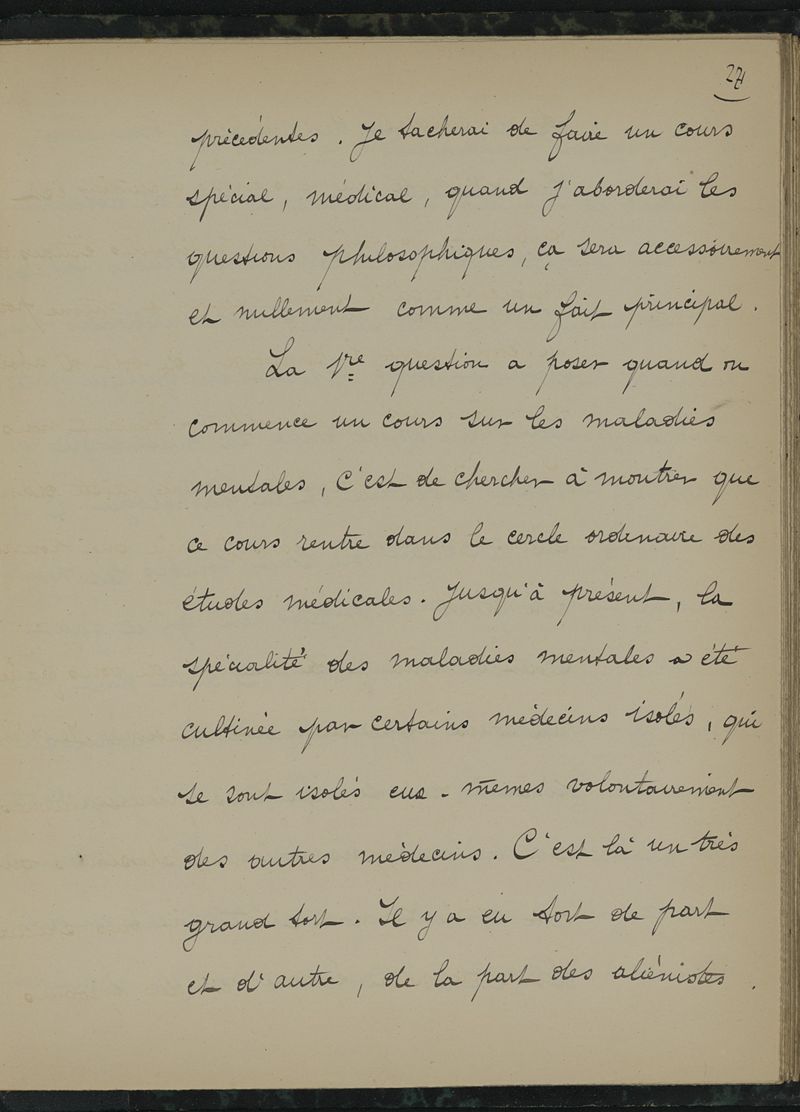 précédentes. Je tacherai de faire un cours
spécial, médical, quand j'aborderai les
questions philosophiques, ça sera accessoirement
et nullement comme un fait principal.
La 1re question a poser quand on
commence un cours sur les maladies
mentales, c'est de chercher à montrer que
ce cours rentre dans le cercle ordinaire des
études médicales. Jusqu'à présent, la
spécialité des maladies mentales a été
cultivée par certains médecins isolés, qui
se sont isolés eux-mêmes volontairement
des autres médecins. C'est là un très
grand tort. Il y a eu tort de part
et d'autre, de la part des aliénistes.